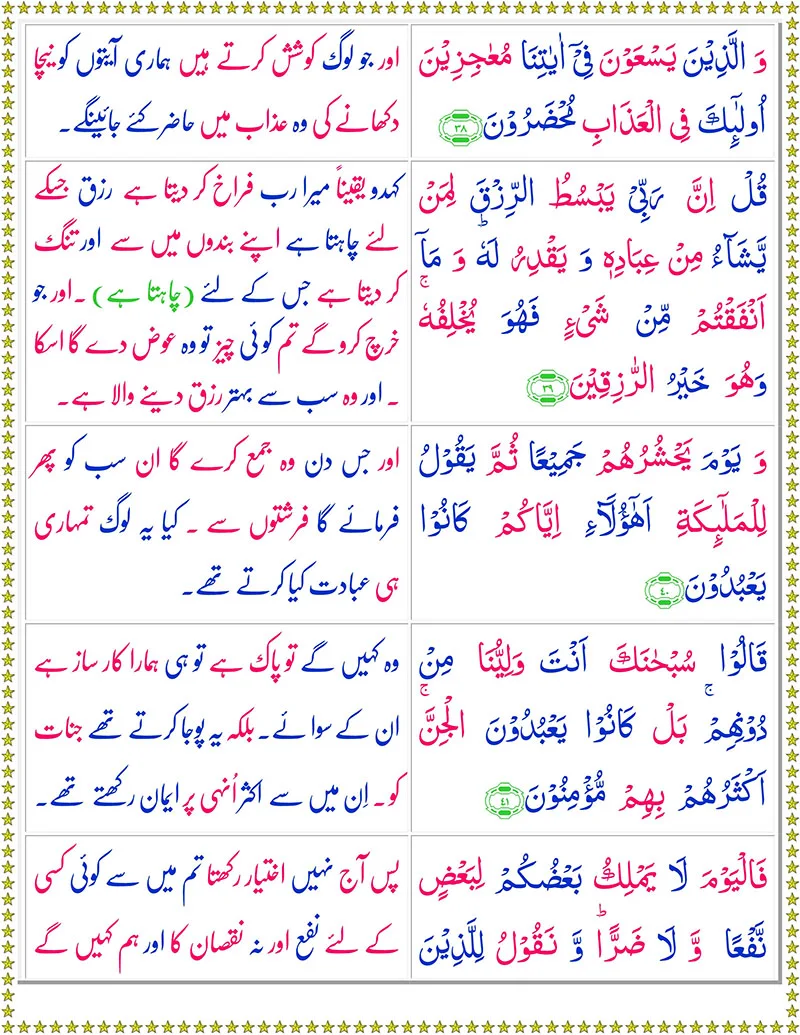 وَ الَّذِيْنَ يَسْعَوْنَ فِيْۤ اٰيٰتِنَا مُعٰجِزِيْنَ
اُولٰٓئِكَ فِي الْعَذَابِ مُحْضَرُوْنَ ﴿۳۸﴾
اور جو لوگ کوشش کرتے ہیں ہماری آیتوں کو نیچا
دکھانے کی وہ عذاب میں حاضر کئے جائینگے۔
قُلْ اِنَّ رَبِّيْ يَبْسُطُ الرِّزْقَ لِمَنْ
يَّشَآءُ مِنْ عِبَادِهٖ وَ يَقْدِرُ لَهٗ ؕ وَ مَاۤ
اَنْفَقْتُمْ مِّنْ شَيْءٍ فَهُوَ يُخْلِفُهٗ ۚ
وَهُوَ خَيْرُ الرّٰزِقِيْنَ ﴿۳۹﴾
کہدو یقیناً میرا رب فراخ کر دیتا ہے رزق جسکے
لئے چاہتا ہے اپنے بندوں میں سے اور تنگ
کر دیتا ہے جس کے لئے (چاہتا ہے)۔ اور جو
خرچ کروگے تم کوئی چیز تو وہ عوض دے گا اسکا
۔ اور وہ سب سے بہتر رزق دینے والا ہے۔
وَ يَوْمَ يَحْشُرُهُمْ جَمِيْعًا ثُمَّ يَقُوْلُ
لِلْمَلٰٓئِكَةِ اَهٰۤؤُلَآءِ اِيَّاكُمْ كَانُوْا
يَعْبُدُوْنَ ﴿۴۰﴾
اور جس دن وہ جمع کرے گا ان سب کو پھر
فرمائے گا فرشتوں سے ۔ کیا یہ لوگ تمہاری
ہی عبادت کیا کرتے تھے۔
قَالُوْا سُبْحٰنَكَ اَنْتَ وَلِيُّنَا مِنْ
دُوْنِهِمْ ۚ بَلْ كَانُوْا يَعْبُدُوْنَ الْجِنَّ ۚ
اَكْثَرُهُمْ بِهِمْ مُّؤْمِنُوْنَ ﴿۴۱﴾
وہ کہیں گے تو پاک ہے تو ہی ہمارا کارساز ہے
ان کے سوائے۔ بلکہ یہ پوجا کرتے تھے جنات
کو۔ اِن میں سے اکثر اُنہی پر ایمان رکھتے تھے۔
فَالْيَوْمَ لَا يَمْلِكُ بَعْضُكُمْ لِبَعْضٍ
نَّفْعًا وَّ لَا ضَرًّا ؕ وَ نَقُوْلُ لِلَّذِيْنَ
پس آج نہیں اختیار رکھتا تم میں سے کوئی کسی
کے لئے نفع اور نہ نقصان کا اور ہم کہیں گے